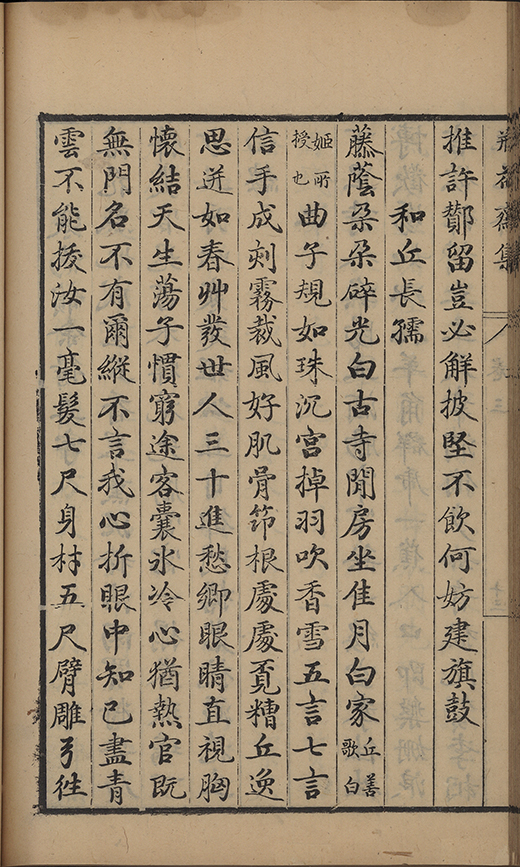 瓶花齋集
卷三
十三
推許鄼留豈必解披堅不飲何妨建旗鼓
和丘長孺
藤蔭朶朶碎光白古寺閒房坐佳月白家丘善歌白
姬所授也曲子規如珠沉宮掉羽吹香雪五言七言
信手成刻霧裁風好肌骨節根處處覓糟丘逸
思迸如春艸發世人三十進愁鄉眼睛直視胸
懷結天生蕩子慣窮途客囊氷冷心猶熱官既
無門名不有爾縱不言我心折眼中知己盡青
雲不能拔汝一毫髮七尺身材五尺臂雕弓徃